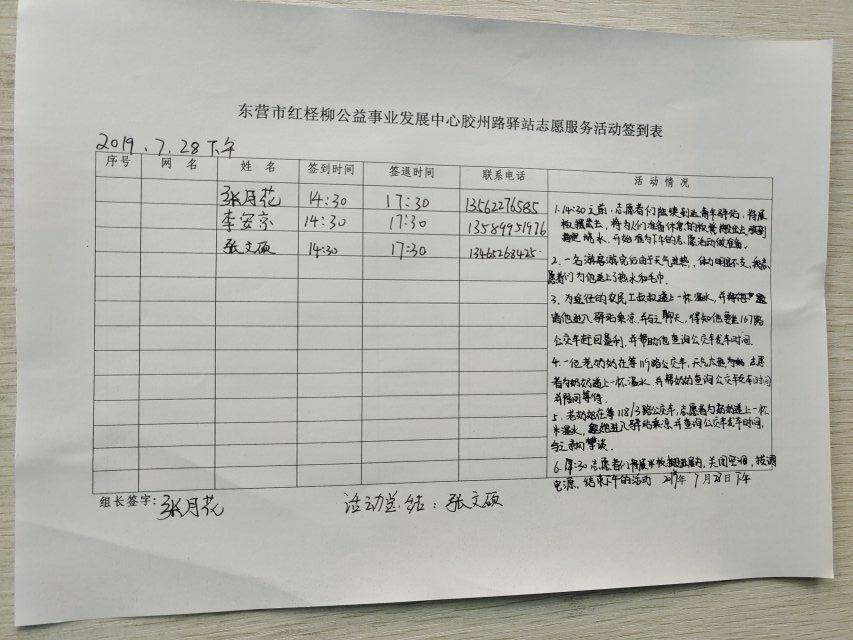 东营市红柽柳公益事业发展中心胶州路驿站志愿服务活动签到表
2019.7.28下午
序号 网名 姓名 签到时间 签退时间 联系电话 活动情况
张月花 14:30 17:30 13562276585
李安京 14:30 17:30 13589951976
张文硕 14:30 17:30 13465268425
1.14:30之前,志愿者们陆续到达青年驿站,将展
板摆出去,将为人们准备休息的板凳搬出去
烧水,开始准为下午的志愿活动做准备。
2.一名游客游完后由于天气燥热,体力明显不支,志
愿者们为他送上了热水和毛巾。
3.为途径的农民工叔叔递上一杯温水,并
请他进入驿站乘凉,并与之聊天,得知他要坐167路
公交车赶回垦利,并帮助他查询公交车发车时间.
4.一位老奶奶在等119路公交车,天气太热 志愿
者为奶奶递上一杯温水,并帮奶奶查询公交发车时间
并陪同等待.
5.老奶奶在等118/3路公交车,志愿者为奶奶递上一杯
温水,进入驿站乘凉,并查询公交车发车时间,
与之亲切攀谈.
6.17:30志愿者们将展板搬进屋内,关闭空调,拔调
电源,结束下午的活动 2019年7月28日下午
组长签字:张月花 活动总结:张文硕